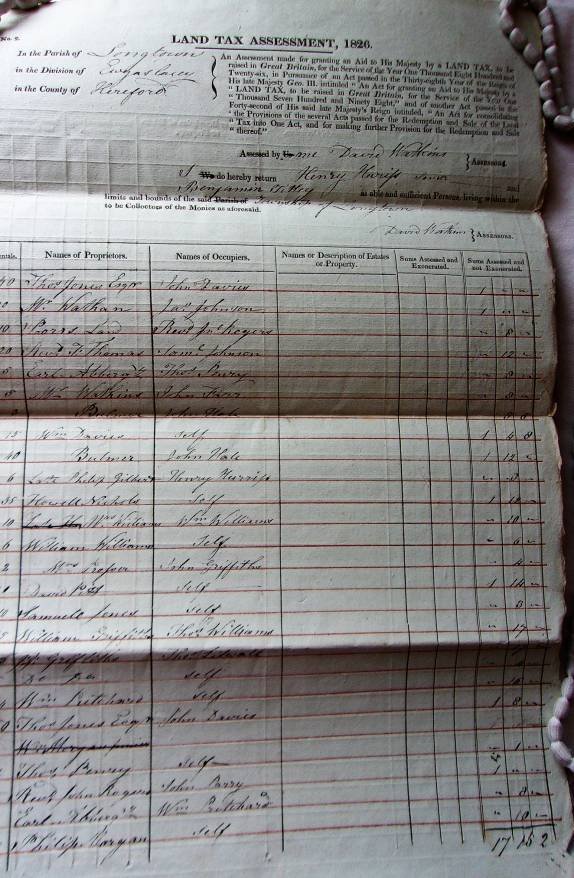 No. 2.
LAND TAX ASSESSMENT, 1826.
In the Parish of Longtown
in the Division of Ewyas Lacy
in the County of Hereford
An Assessment made for granting an Aid to His Majesty by a LAND TAX, to be
raised in Great Britain, for the Service of the Year One Thousand Eight Hundred and
Twenty-six, in Pursuance of an Act passed in the Thirty-eighth Year of the Reign of
his late Majesty Geo. III. intituled " An Act for granting an Aid to His Majesty by a
" LAND TAX, to be raised in Great Britain, for the Service of the Year One
" Thousand Seven Hundred and Ninety Eight," and of another Act passed in the
Forty-second of His said late Majesty's Reign intituled, " An Act for consolidating
" the Provisions of the several Acts passed for the Redemption and Sale of the Land
" Tax into One Act, and for making further Provision for the Redemption and Sale
" thereof."
Assessed by Us me David Watkins } Assessors.
I We do hereby return Henry Harriss and
Benjamin as able and sufficient Persons, living within the
limits and bounds of the said Parish of Township of Longtown
to be Collectors of the Monies as aforesaid.
David Watkins } Assessors.
Names of Proprietors. Names of Occupiers. Names or Description of Estates or Property. Sums Assessed and Exonerated. Sums Assessed and not Exonerated.
Thos Jones Esqr John Davies 1 " "
Mr Wathan Jas Johnson 1 " "
Parrs Land Revd Jno Rogers " 8 "
Revd F Thomas Saml Johnson " 12 "
Earl Thos Parry " 8 "
Mrs Watkins John Parr " 8 "
Bulmer John Hale
15 Wm Davies Self 1 4 8
40 Bulmer John Hale 1 12 "
6 Late Philip Gilbert Henry Harriss
35 Howell Nichols Self
10 Wm Williams Wm Williams " 10 "
6 William Williams Self " 6 "
2 Mrs Prosser John Griffiths " 4 "
David Self 1 14 "
Samuell Jones Self " 8 "
William Griffiths Thos Williams " 17 "
Griffiths Thos
Do Do Self
Wm Pritchard Self 1 8 "
Thos Jones Esqr John Davies
Wm Morgan " 1 "
Thos Perrey Self 1
Revd John Rogers John Parry " 8 "
Earl Wm Pritchard " 10 "
Philip Morgan Self
17 15 2